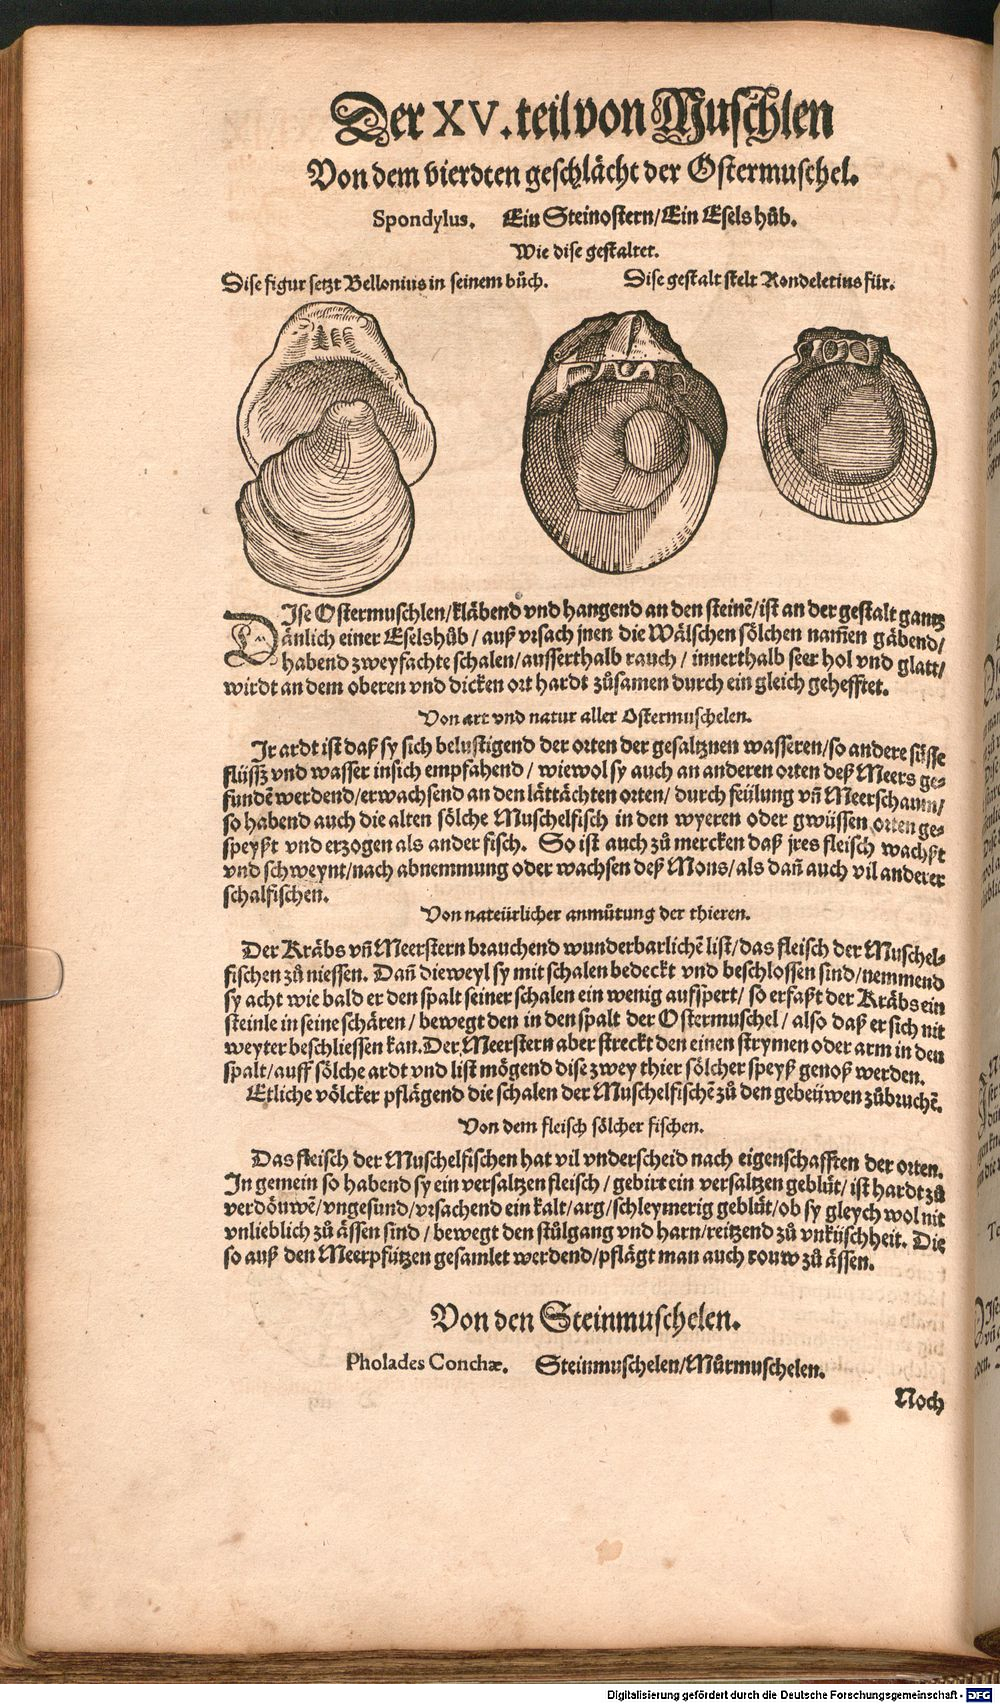 Der XV. teil von Muschlen
Von dem vierdten geschlächt der Ostermuschel.
Spondylus. Ein Steinostern/Ein Esels hůb.
Wie dise gestaltet.
Dise figur setzt Bellonius in seinem bůch. Dise gestalt stelt Rondeletius für.
DIse Ostermuschlen/kläbend vnd hangend an den steinẽ/ist an der gestalt gantz
änlich einer Eselshůb/ auß vrsach jnen die Wälschen sölchen nam̃en gäbend/
habend zweyfachte schalen/ausserthalb rauch/ innerthalb seer hol vnd glatt/
wirdt an dem oberen vnd dicken ort hardt zůsamen durch ein gleich gehefftet.
Von art vnd natur aller Ostermuschelen.
Ir ardt ist daß sy sich belustigend der orten der gesaltznen wasseren/so andere süsse
flüssz vnd wasser insich empfahend/ wiewol sy auch an anderen orten deß Meers ge⸗
fundẽ werdend/erwachsend an den lättächten orten/ durch feülung vñ Meerschaum/
so habend auch die alten sölche Muschelfisch in den wyeren oder gwüssen orten ge⸗
speyßt vnd erzogen als ander fisch. So ist auch zů mercken daß jres fleisch wachßt
vnd schweynt/nach abnemmung oder wachsen deß Mons/als dañ auch vil anderer
schalfischen.
Von nateürlicher anmůtung der thieren.
Der Kräbs vñ Meerstern brauchend wunderbarlichẽ list/das fleisch der Muschel⸗
fischen zů niessen. Dañ dieweyl sy mit schalen bedeckt vnd beschlossen sind/nemmend
sy acht wie bald er den spalt seiner schalen ein wenig aufspert/ so erfaßt der Kräbs ein
steinle in seine schären/ bewegt den in den spalt der Ostermuschel/ also daß er sich nit
weyter beschliessen kan. Der Meerstern aber streckt den einen strymen oder arm in den
spalt/auff sölche ardt vnd list mögend dise zwey thier sölcher speyß genoß werden.
Etliche völcker pflägend die schalen der Muschelfischẽ zů den gebeüwen zůbruchẽ.
Von dem fleisch sölcher fischen.
Das fleisch der Muschelfischen hat vil vnderscheid nach eigenschafften der orten.
In gemein so habend sy ein versaltzen fleisch/ gebirt ein versaltzen geblüt/ ist hardt zů
verdöuwẽ/vngesund/vrsachend ein kalt/arg/schleymerig geblüt/ob sy gleych wol nit
vnlieblich zů ässen sind/ bewegt den stůlgang vnd harn/reitzend zů vnküschheit. Die
so auß den Meerpfützen gesamlet werdend/pflägt man auch rouw zů ässen.
Von den Steinmuschelen.
Pholades Conchæ. Steinmuschelen/Můrmuschelen.
Noch
Digitalisierung gefördert durch die Deutsche Forschungsgemeinschaft - DFG